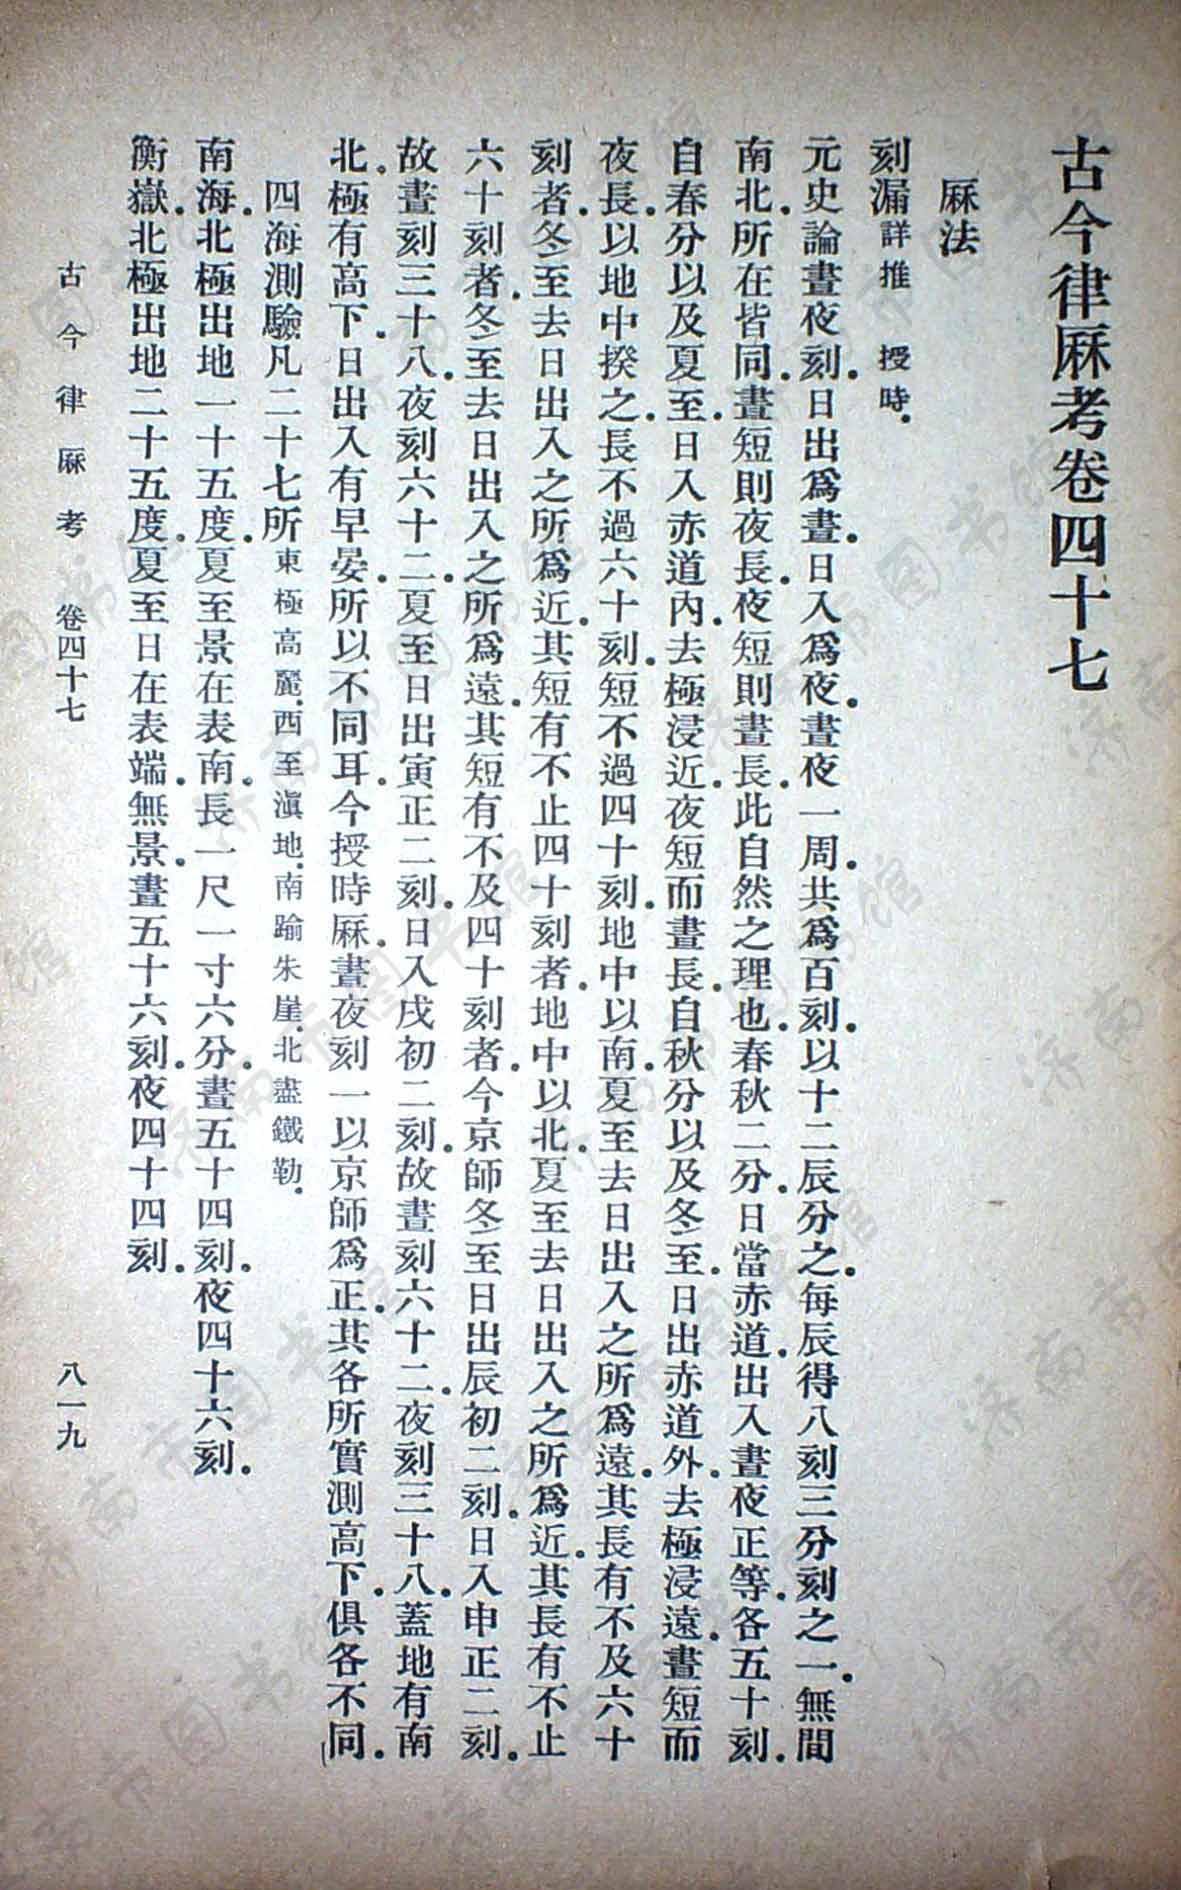 古今律厤考卷四十七
厤法
刻漏詳推授時．
元史論晝夜刻．日出爲晝．日入爲夜．晝夜一周．共爲百刻．以十二辰分之．每辰得八刻三分刻之一．無間
南北．所在皆同．晝短則夜長．夜短則晝長．此自然之理也．春秋二分．日當赤道．出入晝夜正等．各五十刻．
自春分以及夏至．日入赤道內．去極浸近．夜短而晝長．自秋分以及冬至．日出赤道外．去極浸遠．晝短而
夜長．以地中揆之．長不過六十刻．短不過四十刻．地中以南．夏至去日出入之所爲遠．其長有不及六十
刻者．冬至去日出入之所爲近．其短有不止四十刻者．地中以北．夏至去日出入之所爲近．其長有不止
六十刻者．冬至去日出入之所爲遠．其短有不及四十刻者．今京師冬至日出辰初二刻．日入申正二刻．
故晝刻三十八．夜刻六十二．夏至日出寅正二刻．日入戌初二刻．故晝刻六十二．夜刻三十八．蓋地有南
北．極有高下．日出入有早晏．所以不同耳．今授時厤．晝夜刻一以京師爲正．其各所實測高下．俱各不同．
四海測驗凡二十七所東極高麗．西至滇地．南踰朱崖．北盡鐵勒．
南海．北極出地一十五度．夏至景在表南．長一尺一寸六分．晝五十四刻．夜四十六刻．
衡嶽．北極出地二十五度．夏至日在表端．無景．晝五十六刻．夜四十四刻．
古今律厤考 卷四十七 八一九
济南市图书馆